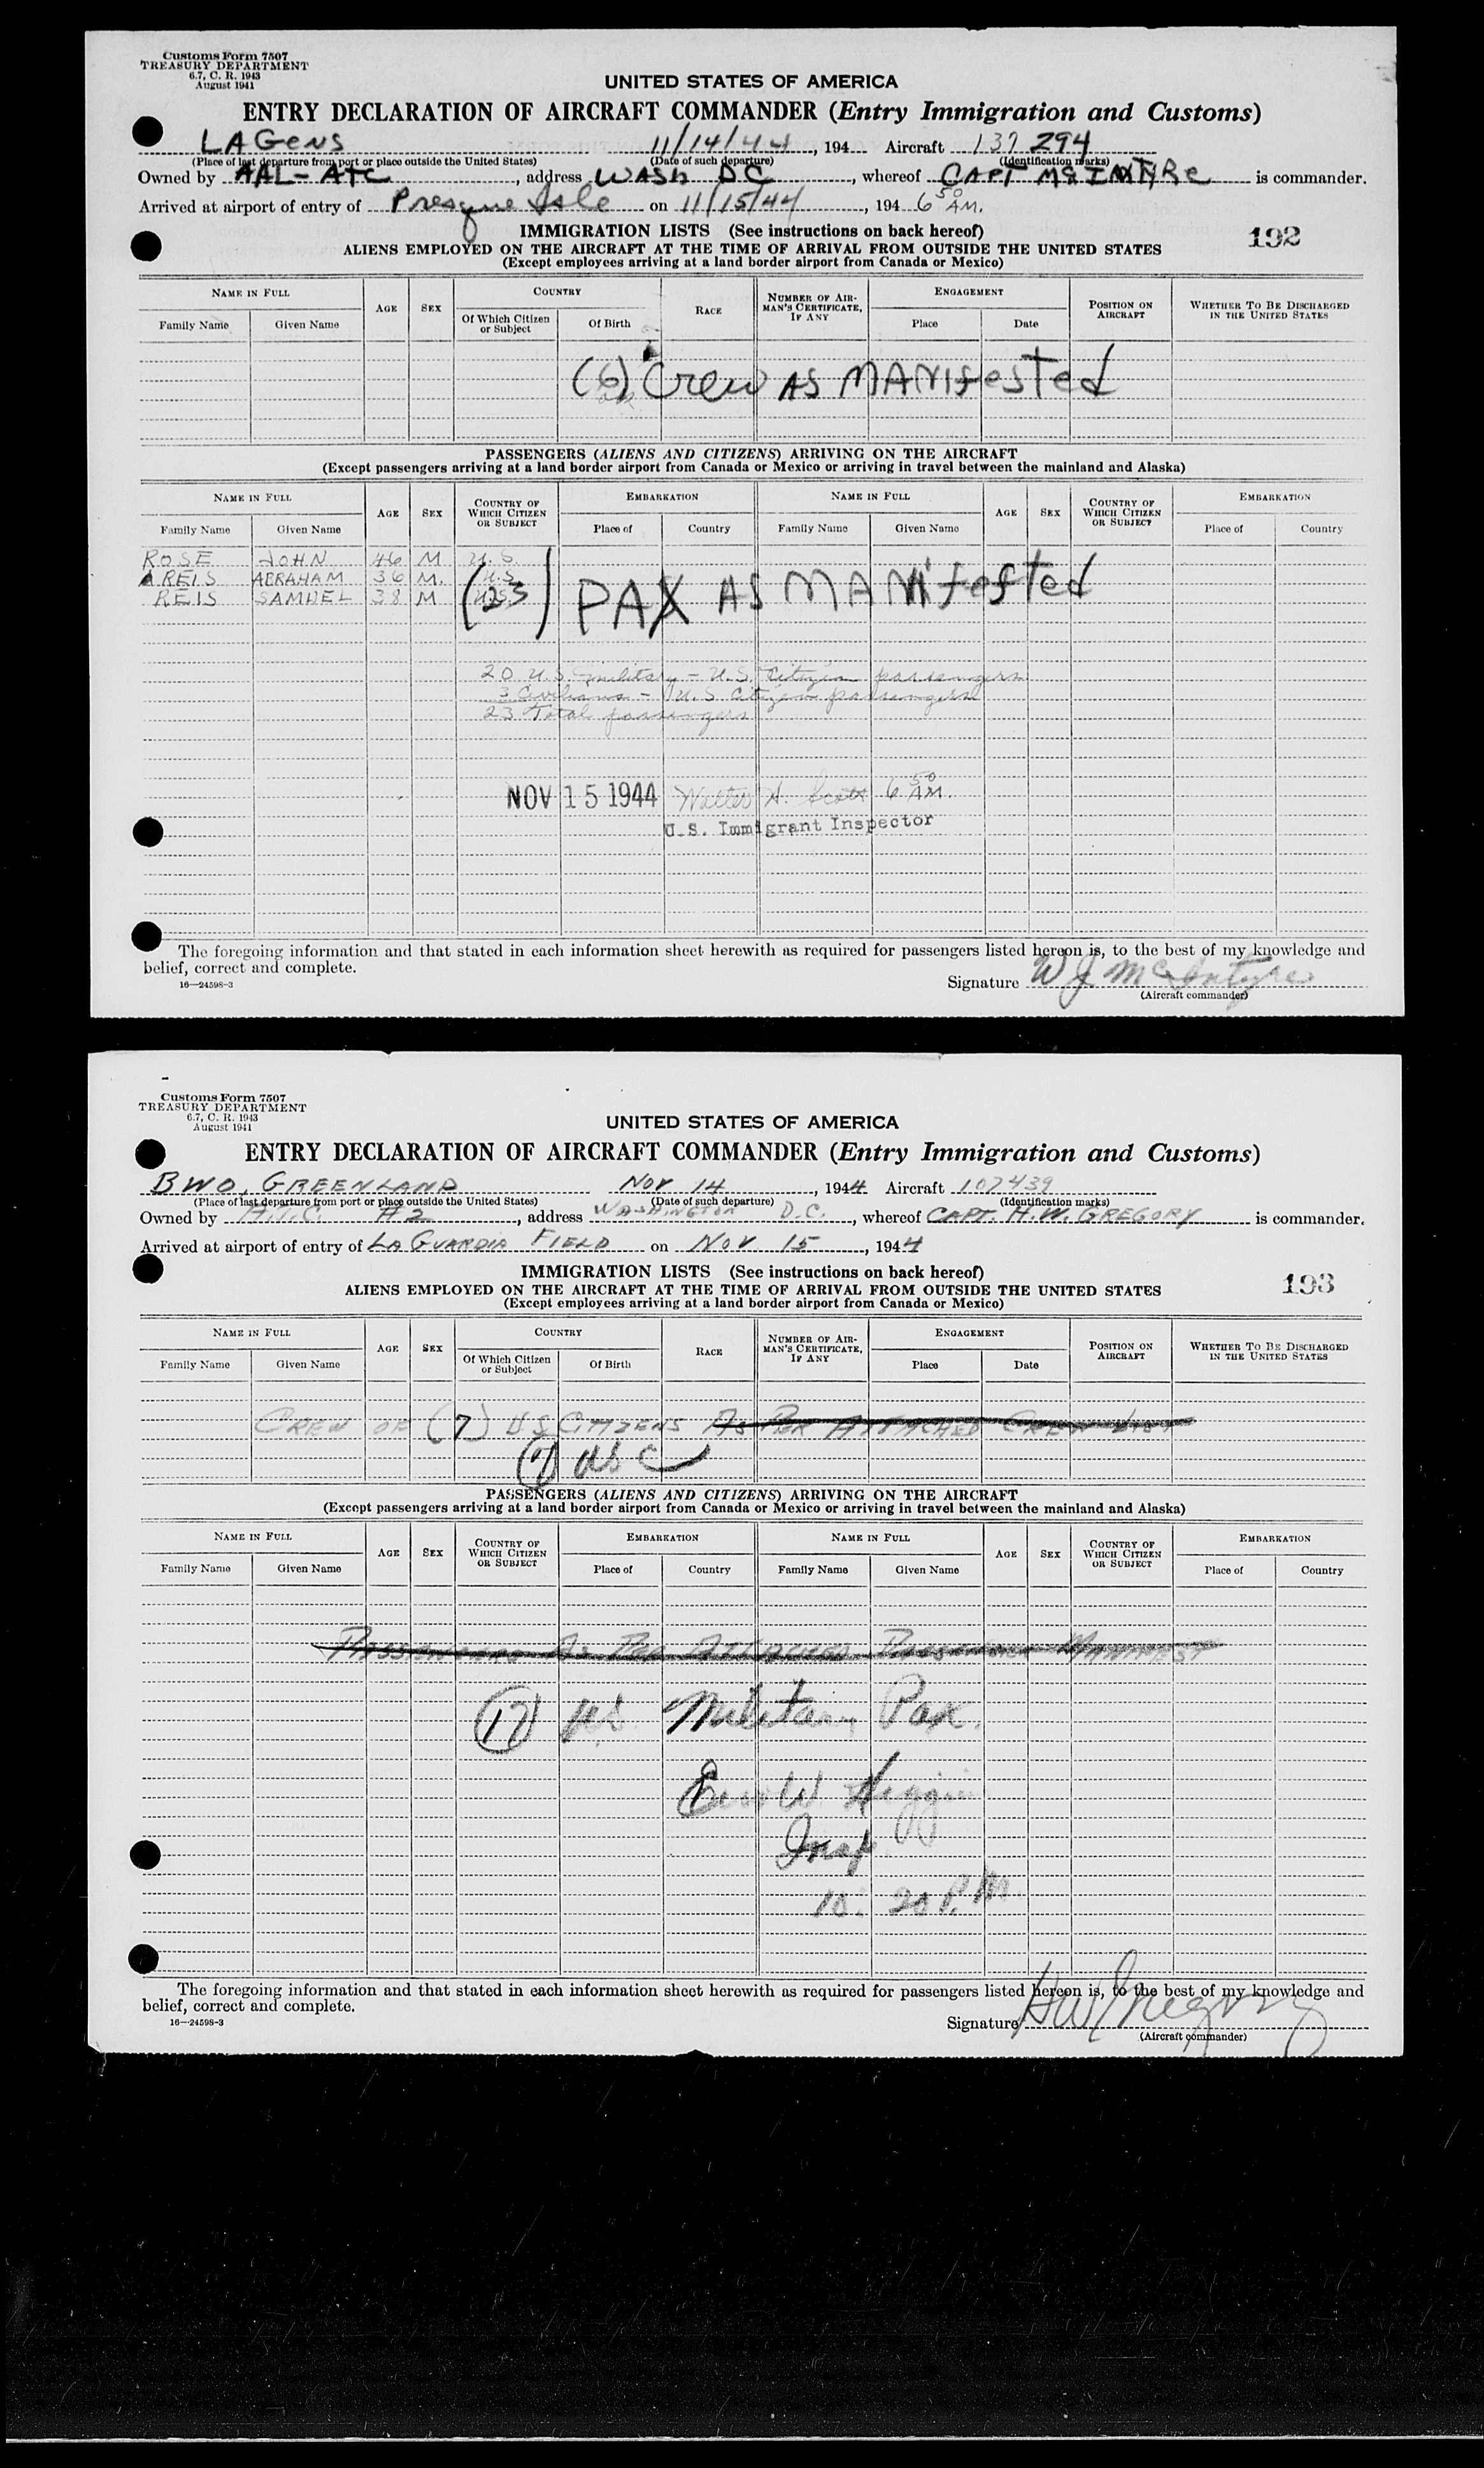 Customs Form 7507
TREASURY DEPARTMENT
6.7, C. R. 1943
August 1941
UNITED STATES OF AMERICA
ENTRY DECLARATION OF AIRCRAFT COMMANDER (Entry Immigration and Customs)
LAGENS 11/14/44, 194 Aircraft 137294
(Place of last departure from port or place outside the United States) (Date of such departure) (Identification marks)
Owned by AAL-ATC, address WASH DC, whereof CAPT McINTYRE is commander.
Arrived at airport of entry of Presque Isle on 11/15/44, 194 6 50 AM.
IMMIGRATION LISTS (See instructions on back hereof) 192
ALIENS EMPLOYED ON THE AIRCRAFT AT THE TIME OF ARRIVAL FROM OUTSIDE THE UNITED STATES
(Except employees arriving at a land border airport from Canada or Mexico)
NAME IN FULL AGE SEX COUNTRY RACE NUMBER OF AIRMAN'S CERTIFICATE, IF ANY ENGAGEMENT POSITION ON AIRCRAFT WHETHER TO BE DISCHARGED IN THE UNITED STATES
Family Name Given Name Of Which Citizen or Subject Of Birth Place Date
(6) Crew AS MANifested
PASSENGERS (ALIENS AND CITIZENS) ARRIVING ON THE AIRCRAFT
(Except passengers arriving at a land border airport from Canada or Mexico or arriving in travel between the mainland and Alaska)
NAME IN FULL AGE SEX COUNTRY OF WHICH CITIZEN OR SUBJECT EMBARKATION NAME IN FULL AGE SEX COUNTRY OF WHICH CITIZEN OR SUBJECT EMBARKATION
Family Name Given Name Place of Country Family Name Given Name Place of Country
ROSE JOHN 46 M U.S.
REIS ABRAHAM 36 M. U.S.
REIS SAMUEL 38 M U.S.
(23) PAX AS MANifested
20 U.S. military - U.S. Citizen passengers
3 Civilians - U.S. Citizen passengers
23 Total passengers
NOV 15 1944 Walter H. Scott 6 50 AM.
U.S. Immigrant Inspector
The foregoing information and that stated in each information sheet herewith as required for passengers listed hereon is, to the best of my knowledge and
belief, correct and complete.
16—24598-3
Signature W J McIntyre
(Aircraft commander)
Customs Form 7507
TREASURY DEPARTMENT
6.7, C. R. 1943
August 1941
UNITED STATES OF AMERICA
ENTRY DECLARATION OF AIRCRAFT COMMANDER (Entry Immigration and Customs)
BWO, GREENLAND NOV 14, 1944 Aircraft 107439
(Place of last departure from port or place outside the United States) (Date of such departure) (Identification marks)
Owned by A.T.C. #2, address WASHINGTON D.C., whereof CAPT. H.W. GREGORY is commander.
Arrived at airport of entry of LA GUARDIA FIELD on NOV 15, 1944
IMMIGRATION LISTS (See instructions on back hereof) 193
ALIENS EMPLOYED ON THE AIRCRAFT AT THE TIME OF ARRIVAL FROM OUTSIDE THE UNITED STATES
(Except employees arriving at a land border airport from Canada or Mexico)
NAME IN FULL AGE SEX COUNTRY RACE NUMBER OF AIRMAN'S CERTIFICATE, IF ANY ENGAGEMENT POSITION ON AIRCRAFT WHETHER TO BE DISCHARGED IN THE UNITED STATES
Family Name Given Name Of Which Citizen or Subject Of Birth Place Date
CREW OF (7) US CITIZENS AS PER ATTACHED CREW LIST
(7) USC
PASSENGERS (ALIENS AND CITIZENS) ARRIVING ON THE AIRCRAFT
(Except passengers arriving at a land border airport from Canada or Mexico or arriving in travel between the mainland and Alaska)
NAME IN FULL AGE SEX COUNTRY OF WHICH CITIZEN OR SUBJECT EMBARKATION NAME IN FULL AGE SEX COUNTRY OF WHICH CITIZEN OR SUBJECT EMBARKATION
Family Name Given Name Place of Country Family Name Given Name Place of Country
PASSENGERS AS PER ATTACHED PASSENGER MANIFEST
(17) U.S. Military Pax.
W.
Insp
10:20 P.M.
The foregoing information and that stated in each information sheet herewith as required for passengers listed hereon is, to the best of my knowledge and
belief, correct and complete.
16—24598-3
Signature HW Gregory
(Aircraft commander)